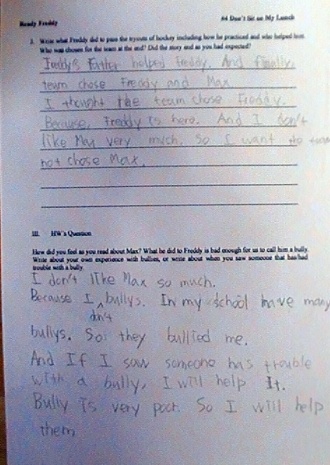 Ready Freddy
#4 Don't Sit on My Lunch
3. Write what Freddy did to pass the tryouts of hockey including how he practiced and who helped him.
Who was chosen for the team at the end? Did the story end as you had expected?
Freddy's Father helped Freddy. And finally,
team chose Freddy and Max
I thought the team chose Freddy.
Because, Freddy is hero. And I don't
like Max very much. So I want the team
not chose Max.
III. HW's Question
How did you feel as you read about Max? What he did to Freddy is bad enough for us to call him a bully.
Write about your own experience with bullies, or write about when you saw someone that has/had
trouble with a bully.
I don't like Max so much.
Because I don't bullys. In my school have many
bullys. So: they bullied me.
And If I saw someone has trouble
with a bully, I will help It.
Bully is very poor. So I will help
them